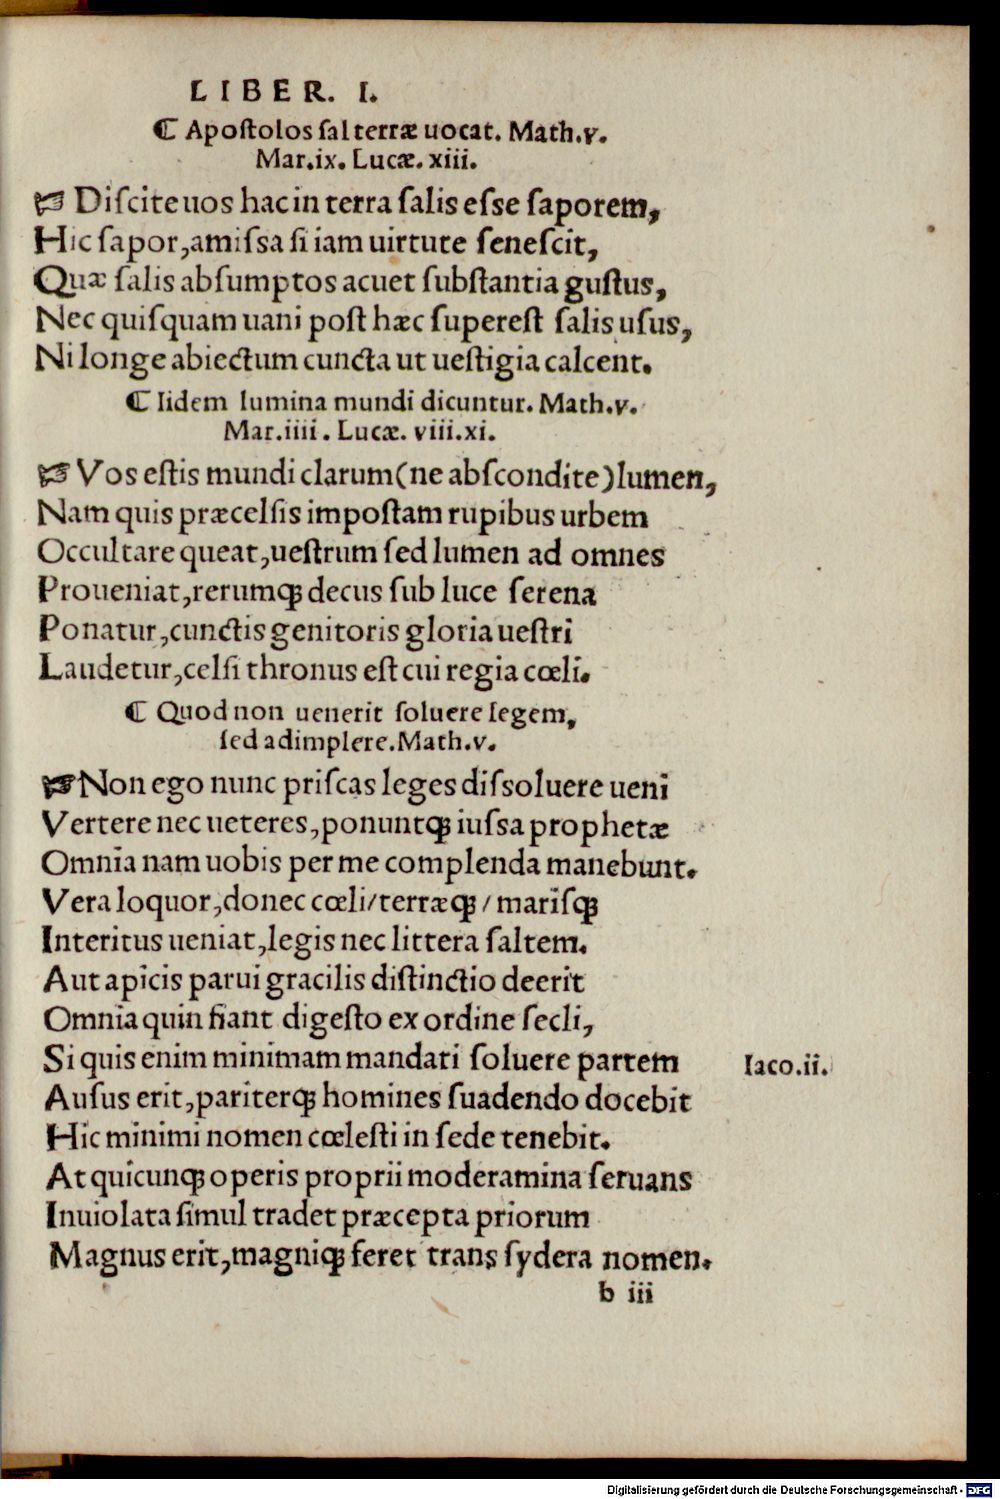 LIBER. I.
¶ Apoſtolos ſal terræ uocat. Math.v.
Mar.ix. Lucæ. xiii.
☞ Diſcite uos hac in terra ſalis eſse ſaporem,
Hic ſapor, amiſsa ſi iam uirtute ſeneſcit,
Quæ ſalis abſumptos acuet ſubſtantia guſtus,
Nec quiſquam uani poſt hæc ſupereſt ſalis uſus,
Ni longe abiectum cuncta ut ueſtigia calcent.
¶ Iidem lumina mundi dicuntur. Math.v.
Mar.iiii. Lucæ. viii.xi.
☞ Vos eſtis mundi clarum (ne abſcondite) lumen,
Nam quis præcelſis impoſtam rupibus urbem
Occultare queat, ueſtrum ſed lumen ad omnes
Proueniat, rerumqꝫ decus ſub luce ſerena
Ponatur, cunctis genitoris gloria ueſtri
Laudetur, celſi thronus eſt cui regia cœli.
¶ Quod non uenerit ſoluere legem,
ſed adimplere. Math.v.
☞ Non ego nunc priſcas leges diſsoluere ueni
Vertere nec ueteres, ponuntqꝫ iuſsa prophetæ
Omnia nam uobis per me complenda manebunt.
Vera loquor, donec cœli/terræqꝫ/mariſqꝫ
Interitus ueniat, legis nec littera ſaltem.
Aut apicis parui gracilis diſtinctio deerit
Omnia quin fiant digeſto ex ordine ſecli,
Si quis enim minimam mandati ſoluere partem
Iaco.ii.
Auſus erit, pariterqꝫ homines ſuadendo docebit
Hic minimi nomen cœleſti in ſede tenebit.
At quicunqꝫ operis proprii moderamina ſeruans
Inuiolata ſimul tradet præcepta priorum
Magnus erit, magniqꝫ feret trans ſydera nomen.
b iii
Digitalisierung gefördert durch die Deutsche Forschungsgemeinschaft - DFG